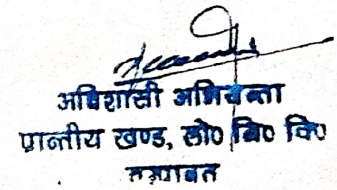 अधिशासी अभियन्ता
प्रान्तीय खण्ड, लो० नि० वि०
चम्पावत